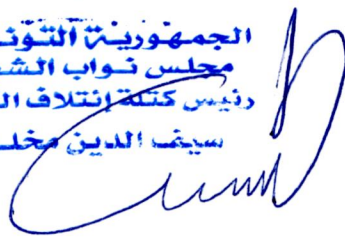 الجمهورية التونـ
مجلس نواب الشـ
رئيس كتلة إئتلاف الـ
سيف الدين مخلـ